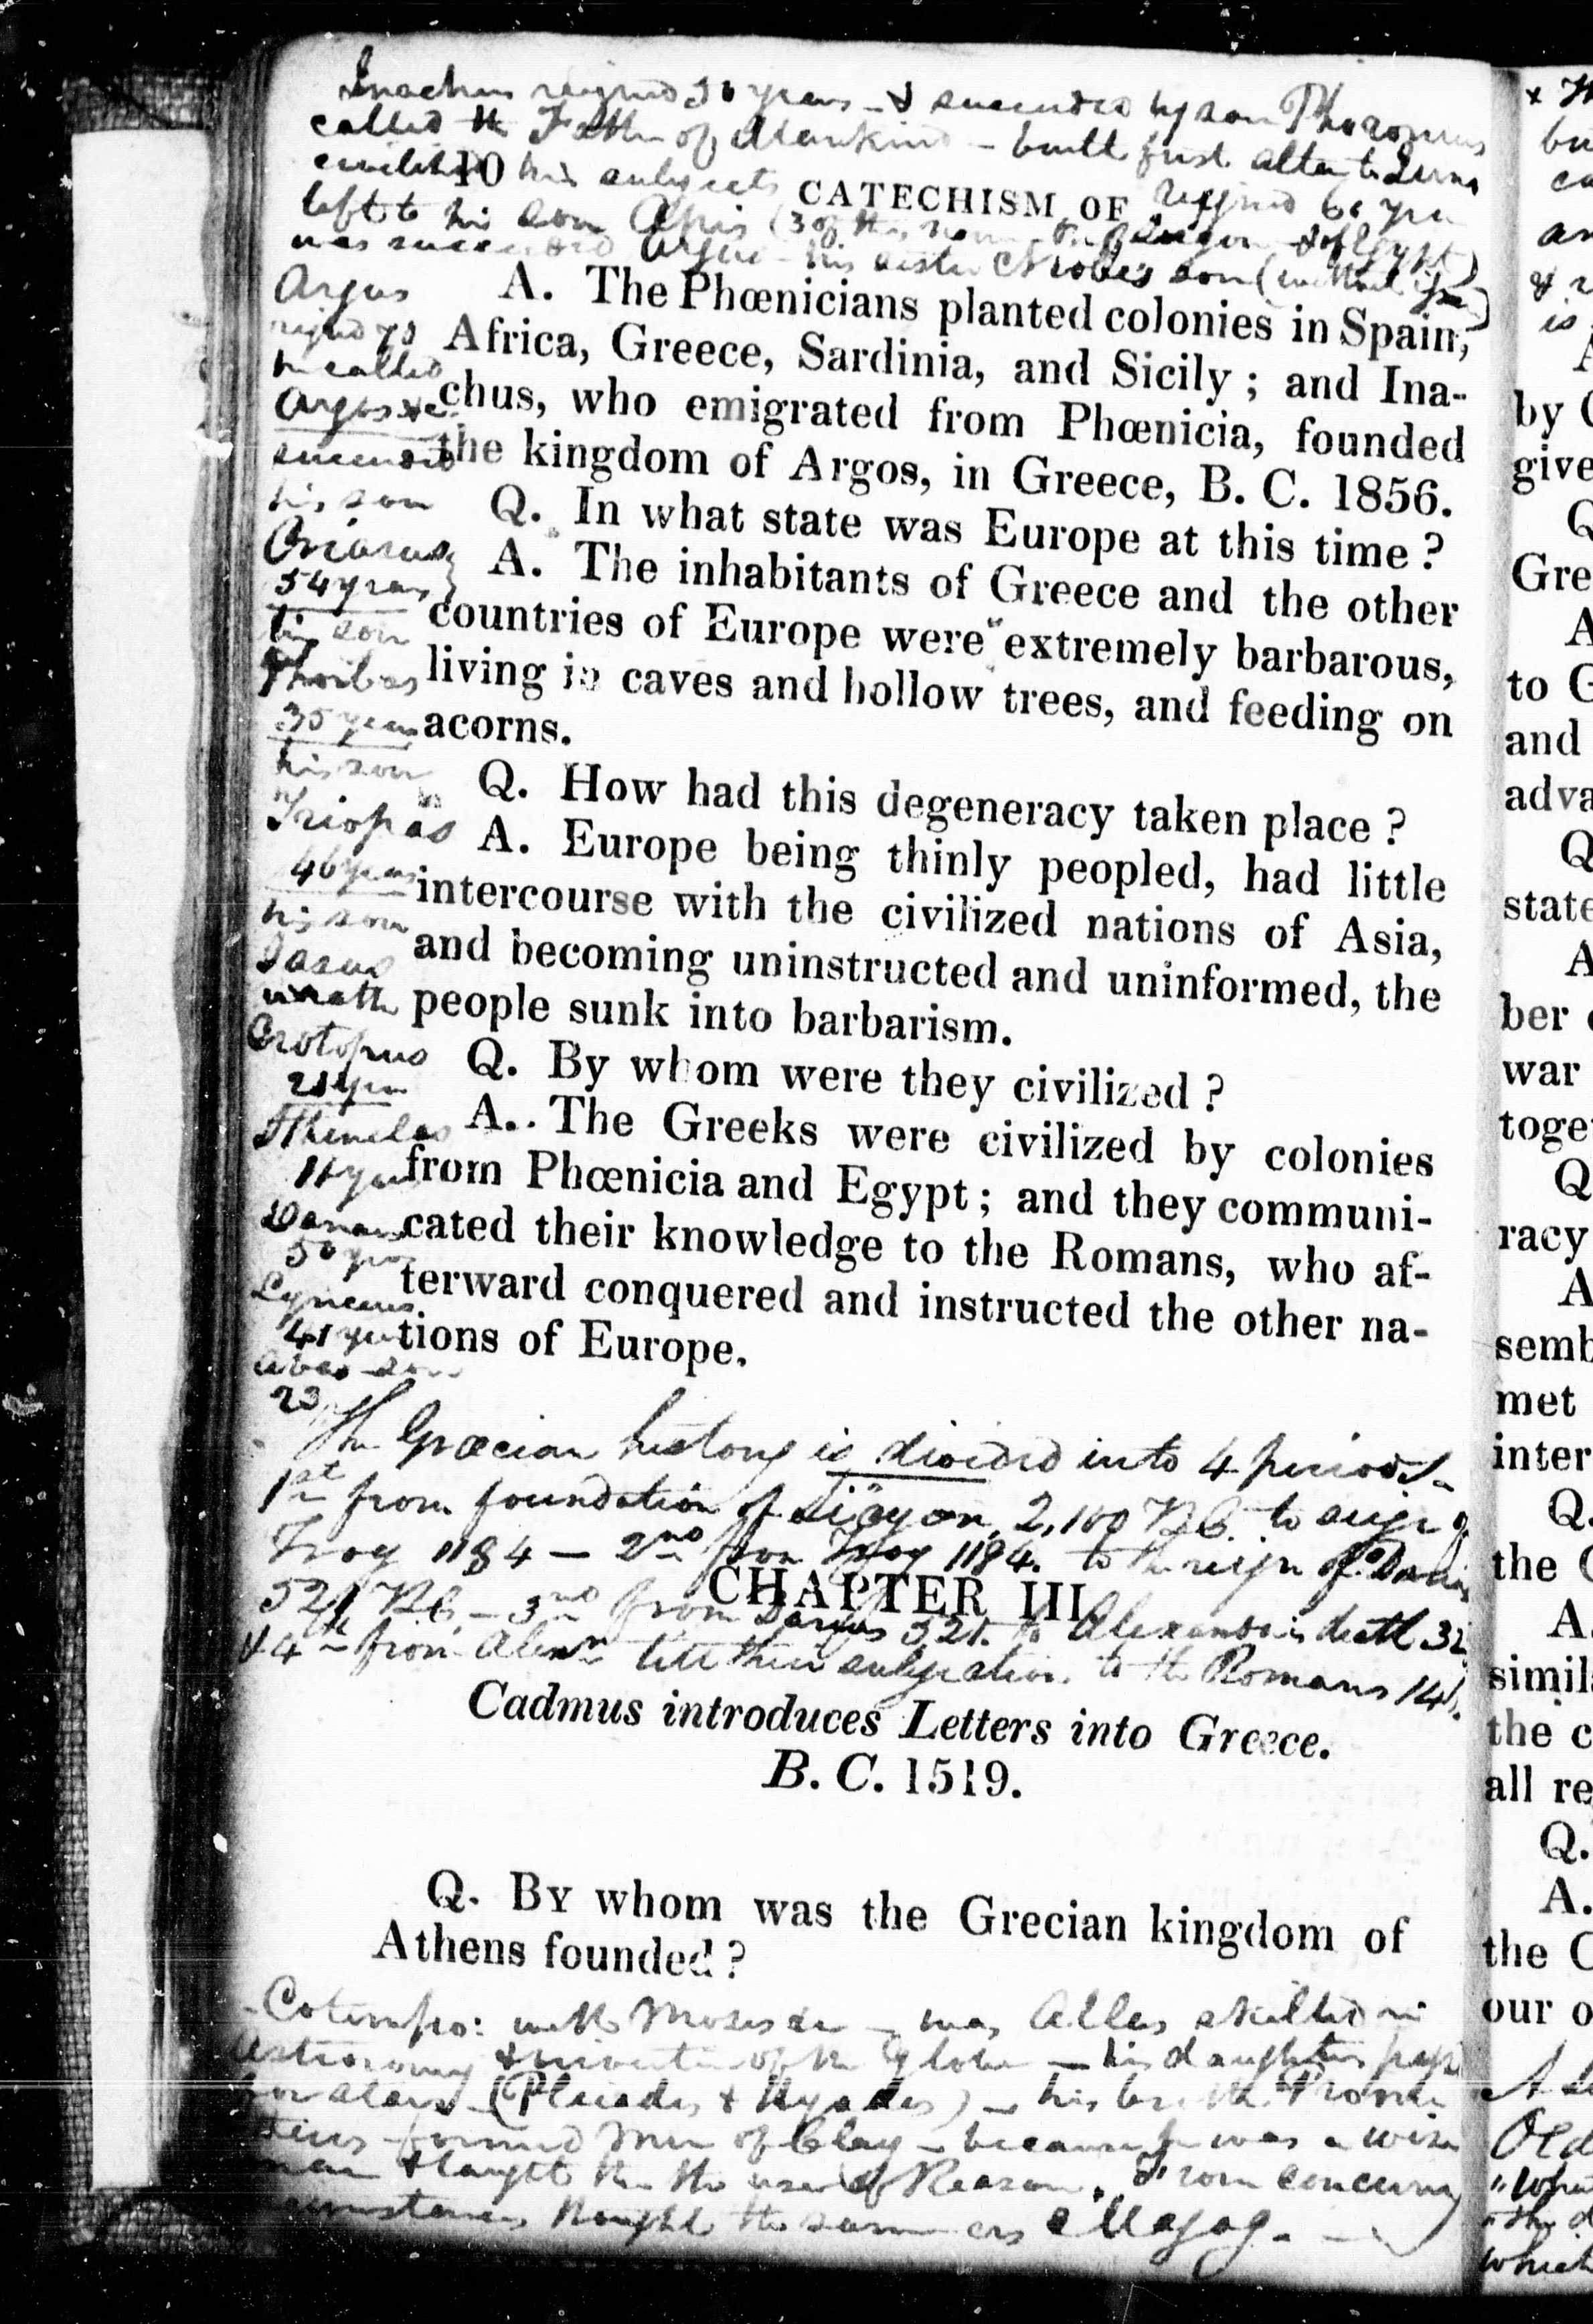 Inachus reigned 50 years - & succeeded by son Phoroneus
called the Father of Mankind - built first altar to Juno
civilized his subjects reigned 60 yrs
10 CATECHISM OF
left to his son Apis (3 of this name
was succeeded Argus - his sister Niobe's son
A. The Phœnicians planted colonies in Spain,
Africa, Greece, Sardinia, and Sicily ; and Ina-
chus, who emigrated from Phœnicia, founded
the kingdom of Argos, in Greece, B. C. 1856.
Q. In what state was Europe at this time ?
A. The inhabitants of Greece and the other
countries of Europe were extremely barbarous,
living in caves and hollow trees, and feeding on
acorns.
Q. How had this degeneracy taken place ?
A. Europe being thinly peopled, had little
intercourse with the civilized nations of Asia,
and becoming uninstructed and uninformed, the
people sunk into barbarism.
Q. By whom were they civilized ?
A. The Greeks were civilized by colonies
from Phœnicia and Egypt ; and they communi-
cated their knowledge to the Romans, who af-
terward conquered and instructed the other na-
tions of Europe.
Argus
reigned 70
he called
Argos &c
succeeded
his son
Criasus
54 years
his son
Phorbas
35 years
his son
Triopas
46 years
his son
Jasus
Crotopus
21 years
Sthenelas
11 years
Danaus
50 years
Lynceus
41 years
Abas son
23
The Græcian history is divided into 4 periods
1st from foundation of Sicyon, 2,100 B.C. to siege of
Troy 1184 - 2nd from Troy 1184. to the reign of Darius
521 B.C. - 3rd from Darius 521. to Alexander's death 32
& 4th from Alexr till their subjection to the Romans 146.
CHAPTER III
Cadmus introduces Letters into Greece.
B. C. 1519.
Q. By whom was the Grecian kingdom of
Athens founded ?
Cotempo: with Moses &c - was Atlas skilled in
Astronomy & inventor of the globe - his daughters
for stars (Pleiades & Hyades) - his brother Prome
theus formed Men of Clay - because he was a wise
man & taught them the use of Reason. From concurring
circumstances thought the same as Magog. -
by
give
Q
Gre
A
to G
and
adva
Q
state
A
ber
war
toge
Q
racy
A
semb
met
inter
Q.
the
A.
simil
the c
all re
Q.
A.
the C
our o
Old
which